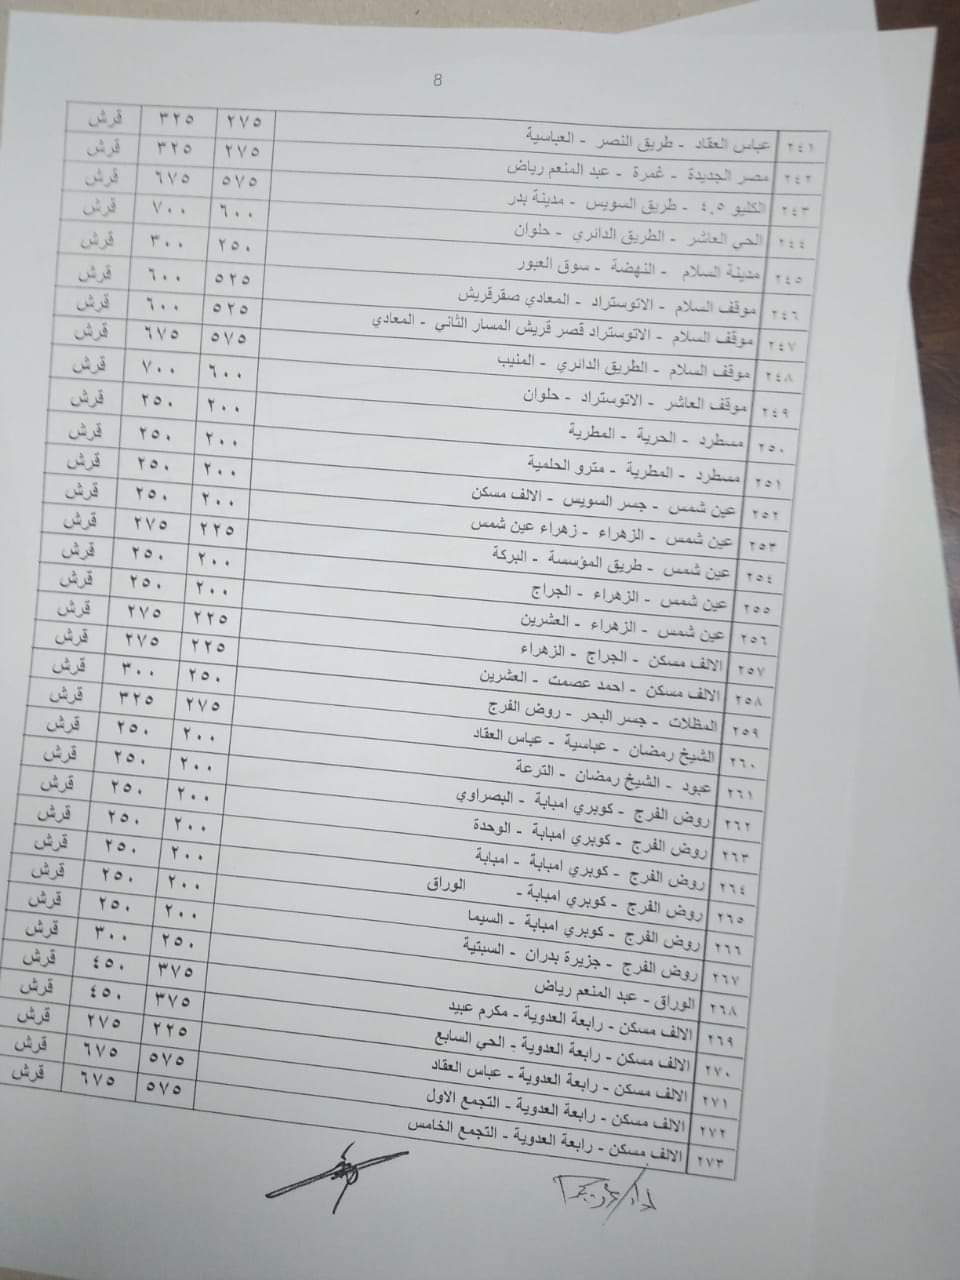 8
٢٤١ عباس العقاد - طريق النصر - العباسية ٢٧٥ ٣٢٥ قرش
٢٤٢ مصر الجديدة - غمرة - عبد المنعم رياض ٢٧٥ ٣٢٥ قرش
٢٤٣ الكليو ٤.٥ - طريق السويس - مدينة بدر ٥٧٥ ٦٧٥ قرش
٢٤٤ الحي العاشر - الطريق الدائري - حلوان ٦٠٠ ٧٠٠ قرش
٢٤٥ مدينة السلام - النهضة - سوق العبور ٢٥٠ ٣٠٠ قرش
٢٤٦ موقف السلام - الاتوستراد - المعادي صقرقريش ٥٢٥ ٦٠٠ قرش
٢٤٧ موقف السلام - الاتوستراد قصر قريش المسار الثاني - المعادي ٥٢٥ ٦٠٠ قرش
٢٤٨ موقف السلام - الطريق الدائري - المنيب ٥٧٥ ٦٧٥ قرش
٢٤٩ موقف العاشر - الاتوستراد - حلوان ٦٠٠ ٧٠٠ قرش
٢٥٠ مسطرد - الحرية - المطرية ٢٠٠ ٢٥٠ قرش
٢٥١ مسطرد - المطرية - مترو الحلمية ٢٠٠ ٢٥٠ قرش
٢٥٢ عين شمس - جسر السويس - الالف مسكن ٢٠٠ ٢٥٠ قرش
٢٥٣ عين شمس - الزهراء - زهراء عين شمس ٢٠٠ ٢٥٠ قرش
٢٥٤ عين شمس - طريق المؤسسة - البركة ٢٢٥ ٢٧٥ قرش
٢٥٥ عين شمس - الزهراء - الجراج ٢٠٠ ٢٥٠ قرش
٢٥٦ عين شمس - الزهراء - العشرين ٢٠٠ ٢٥٠ قرش
٢٥٧ الالف مسكن - الجراج - الزهراء ٢٢٥ ٢٧٥ قرش
٢٥٨ الالف مسكن - احمد عصمت - العشرين ٢٢٥ ٢٧٥ قرش
٢٥٩ المظلات - جسر البحر - روض الفرج ٢٥٠ ٣٠٠ قرش
٢٦٠ الشيخ رمضان - عباسية - عباس العقاد ٢٧٥ ٣٢٥ قرش
٢٦١ عبود - الشيخ رمضان - الترعة ٢٠٠ ٢٥٠ قرش
٢٦٢ روض الفرج - كوبري امبابة - البصراوي ٢٠٠ ٢٥٠ قرش
٢٦٣ روض الفرج - كوبري امبابة - الوحدة ٢٠٠ ٢٥٠ قرش
٢٦٤ روض الفرج - كوبري امبابة - امبابة ٢٠٠ ٢٥٠ قرش
٢٦٥ روض الفرج - كوبري امبابة - الوراق ٢٠٠ ٢٥٠ قرش
٢٦٦ روض الفرج - كوبري امبابة - السيما ٢٠٠ ٢٥٠ قرش
٢٦٧ روض الفرج - جزيرة بدران - السبتية ٢٠٠ ٢٥٠ قرش
٢٦٨ الوراق - عبد المنعم رياض ٢٥٠ ٣٠٠ قرش
٢٦٩ الالف مسكن - رابعة العدوية - مكرم عبيد ٣٧٥ ٤٥٠ قرش
٢٧٠ الالف مسكن - رابعة العدوية - الحي السابع ٣٧٥ ٤٥٠ قرش
٢٧١ الالف مسكن - رابعة العدوية - عباس العقاد ٢٢٥ ٢٧٥ قرش
٢٧٢ الالف مسكن - رابعة العدوية - التجمع الاول ٥٧٥ ٦٧٥ قرش
٢٧٣ الالف مسكن - رابعة العدوية - التجمع الخامس ٥٧٥ ٦٧٥ قرش